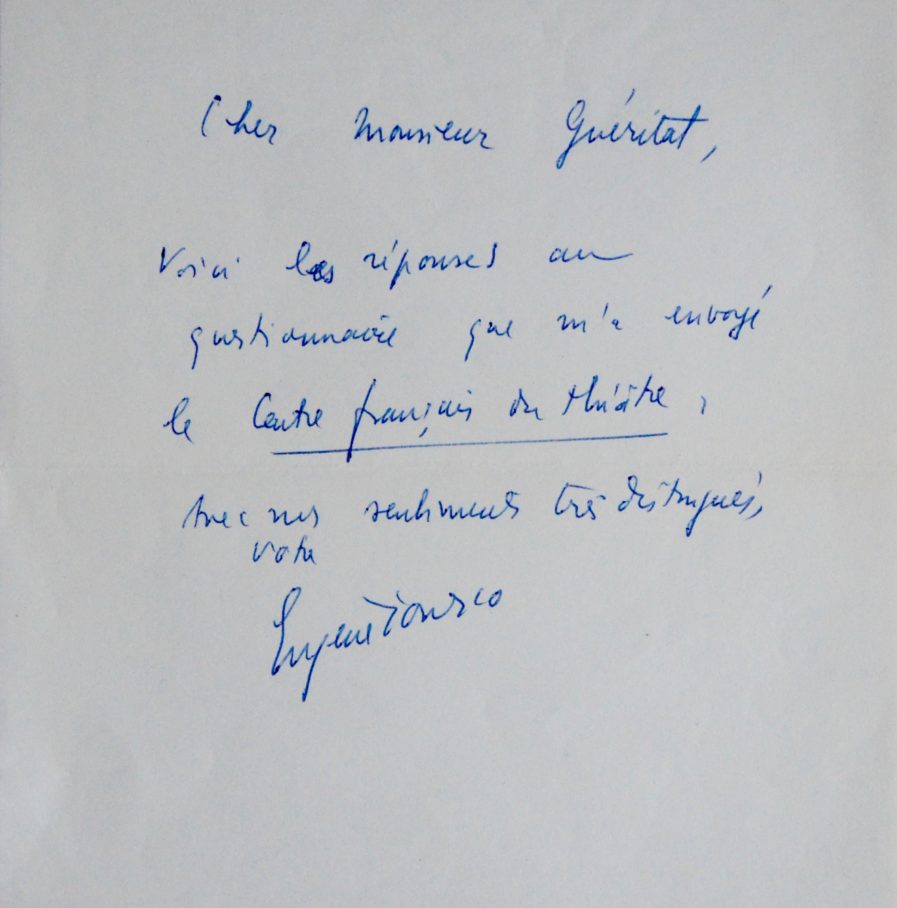 Cher Monsieur Guéritat,
Voici les réponses au
questionnaire que m'a envoyé
le Centre français du théâtre,
Avec mes sentiments très distingués,
votre
Eugène Ionesco